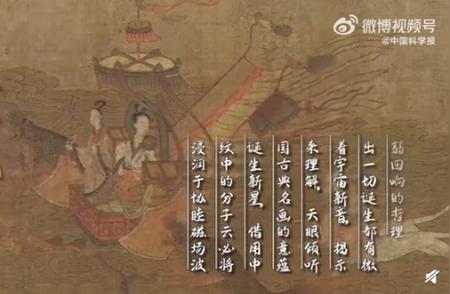 微博视频号
@中国科学报
浸润于协睦磁场波
纹中的分子云必将
诞生新星，借用中
国古典名画的意蕴
来理解，天眼倾听
着宇宙新音，揭示
出一切诞生都有微
弱回响的哲理